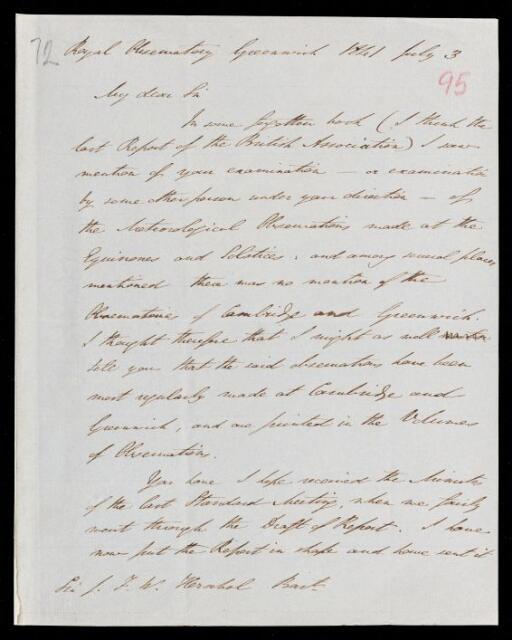 72
Royal Observatory Greenwich 1841 July 3
95
My dear Sir
In some forgotten book (I think the
last Report of the British Association) I saw
mention of your examination — or examination
by some other person under your direction — of
the Meteorological Observations made at the
Equinoxes and Solstices: and among several places
mentioned there was no mention of the
Observatories of Cambridge and Greenwich.
I thought therefore that I might as well
tell you that the said observations have been
most regularly made at Cambridge and
Greenwich, and are printed in the Volumes
of Observations.
You have I hope received the Minutes
of the last Standard Meeting, when we fairly
went through the Draft of Report. I have
now put the Report in shape and have sent it
Sir J. F. W. Herschel Bart